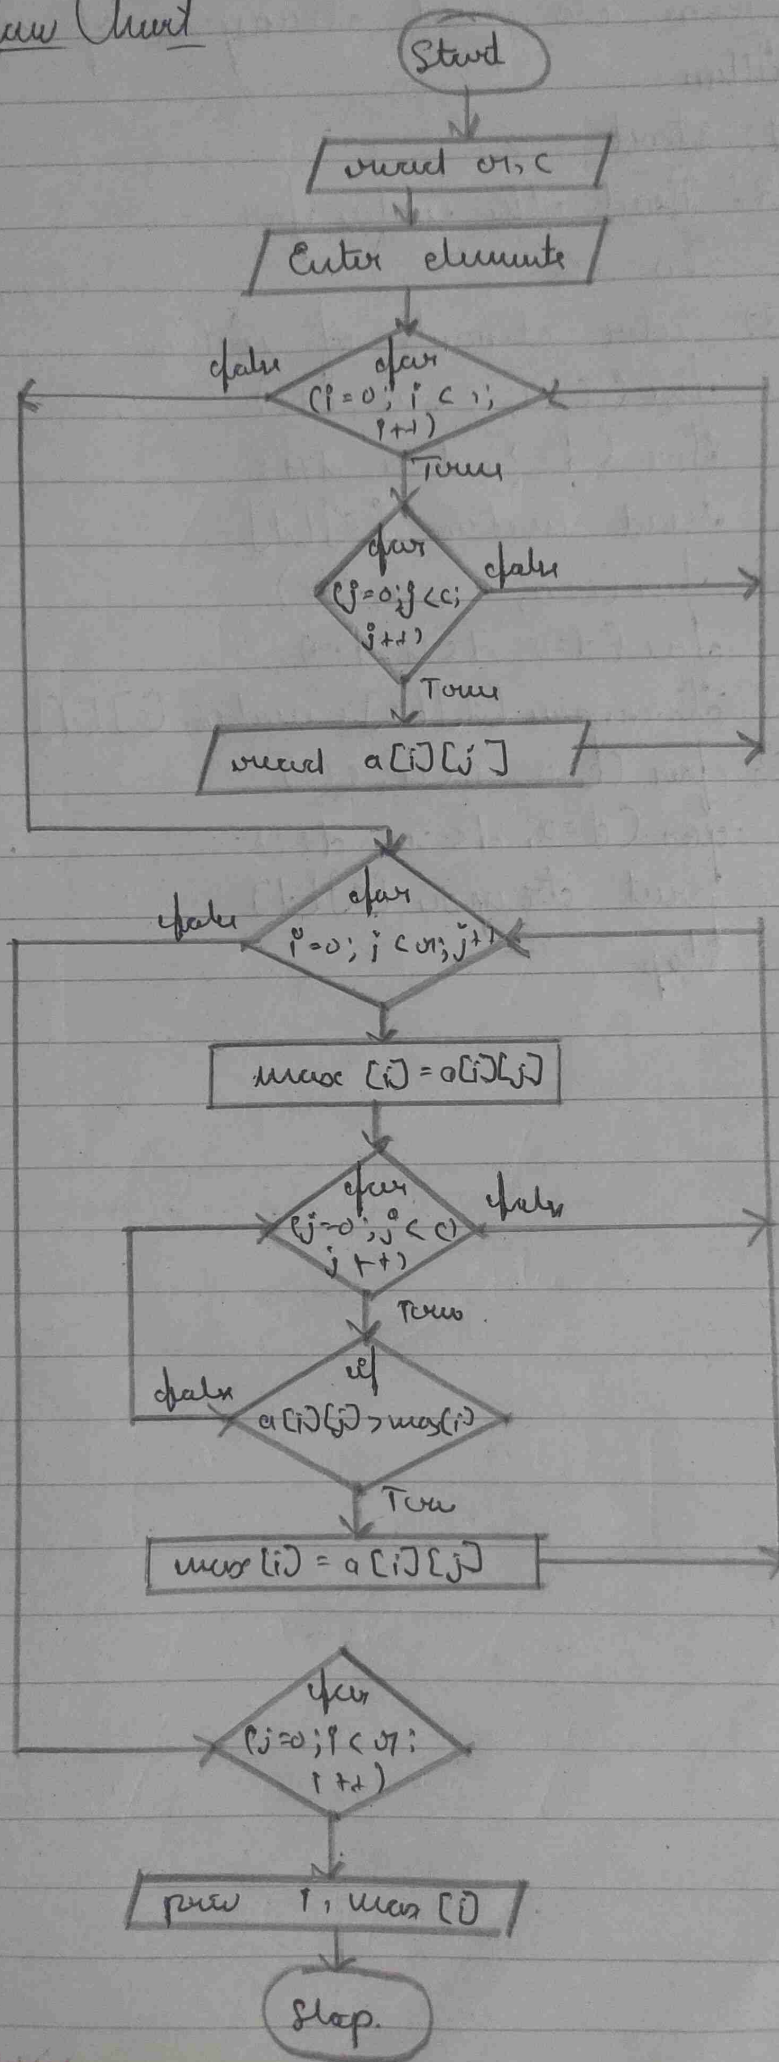 Flow Chart
Start
read r, c
Enter elements
false
for
(i=0; i < r;
i++)
True
for
(j=0; j<c;
j++)
false
True
read a[i][j]
false
for
i=0; j < r; j++
max [i] = a[i][j]
for
(j=0; j < c)
j++)
false
True
if
a[i][j] > max[i]
false
True
max[i] = a[i][j]
for
(j=0; i < r;
i++)
i, max [i]
Stop.